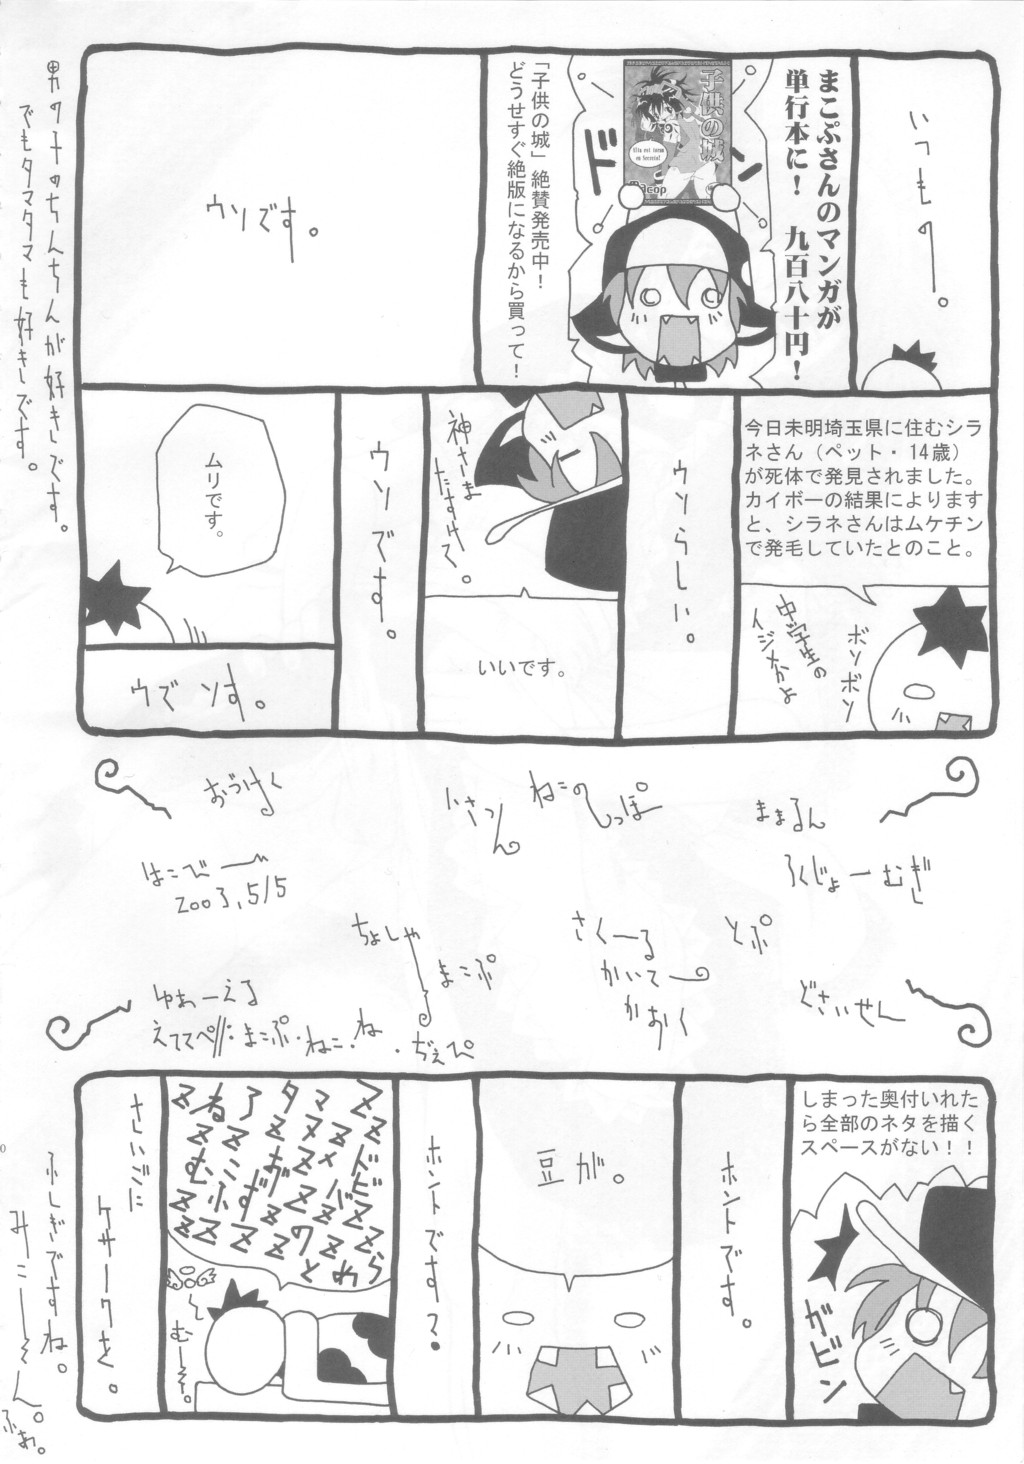 いつもの。
まこぷさんのマンガが
単行本に！　九百八十円！
ドン
子供の城
「子供の城」絶賛発売中！
どうせすぐ絶版になるから買って！
ウソです。
今日未明埼玉県に住むシラ
ネさん（ペット・14歳）
が死体で発見されました。
カイボーの結果によります
と、シラネさんはムケチン
で発毛していたとのこと。
ボソボソ
中学生の
イジメかよ
ウソらしい。
神さま
たすけて。
いいです。
ウソです。
ムリです。
ウズソす。
男の子のちんちんが好きです。
でもタマタマも好きです。
おづけく
ねこの
しっぽ
ままるん
はこびー
2003,5/5
ろくじょーむぎ
ちょしゃ
まこぷ
さくーる
かいてー
かおく
とぷ
どさいせん
しまった奥付いれた
ら全部のネタを描く
スペースがない！！
ガビン
ホントです。
豆が。
ホントです？
むー。
さいごに
ケサークを。
ふしぎですね。
みこーん。
ふぉ。